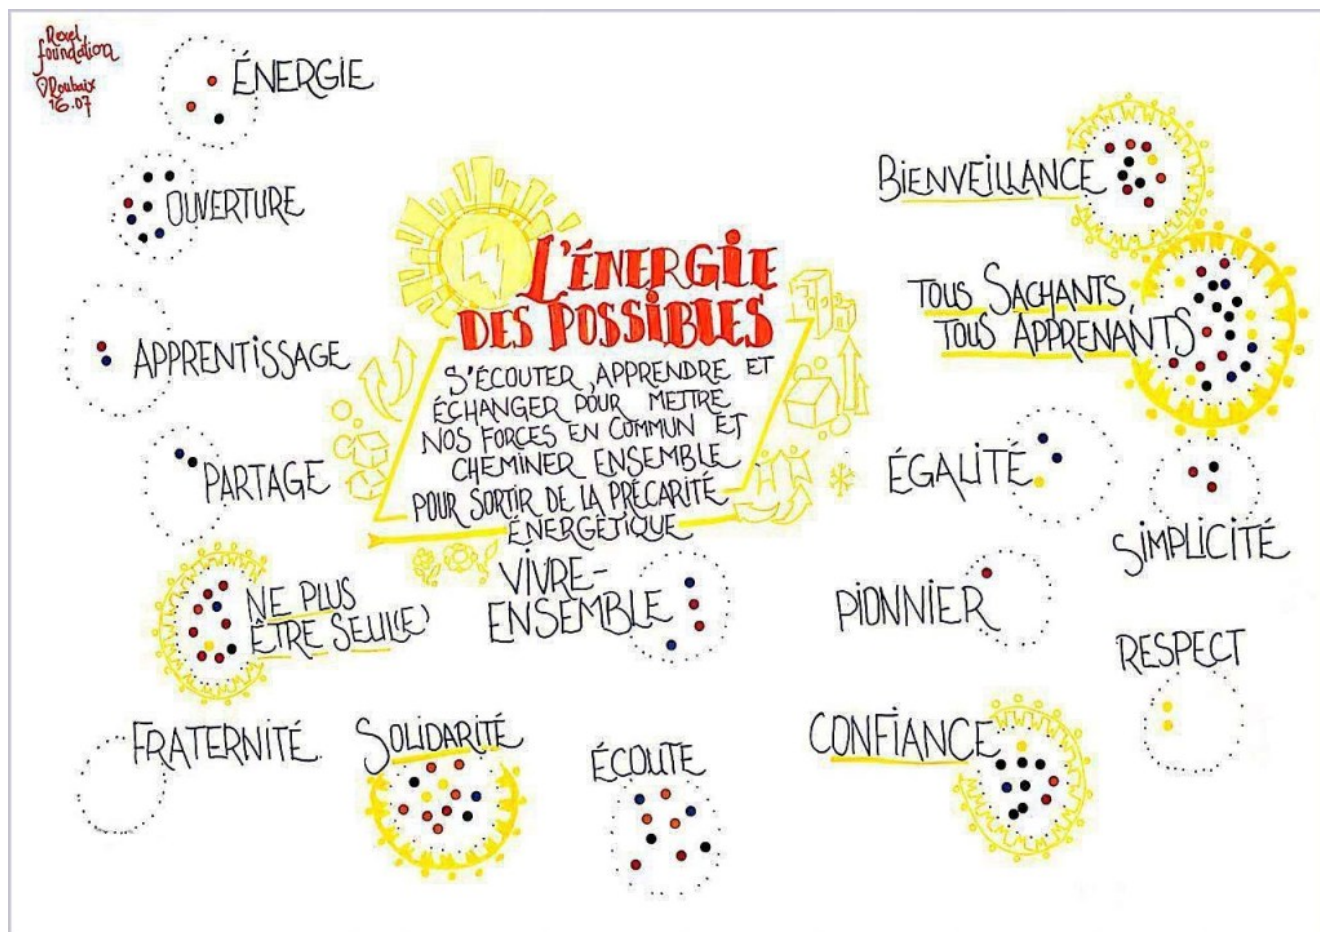 Rexel
foundation
Roubaix
16.07
ÉNERGIE
OUVERTURE
APPRENTISSAGE
PARTAGE
NE PLUS
ÊTRE SEUL(E)
FRATERNITÉ
SOLIDARITÉ
ÉCOUTE
VIVRE-
ENSEMBLE
L'ÉNERGIE
DES POSSIBLES
S'ÉCOUTER, APPRENDRE ET
ÉCHANGER POUR METTRE
NOS FORCES EN COMMUN ET
CHEMINER ENSEMBLE
POUR SORTIR DE LA PRÉCARITÉ
ÉNERGÉTIQUE
BIENVEILLANCE
TOUS SACHANTS
TOUS APPRENANTS
ÉGALITÉ
SIMPLICITÉ
PIONNIER
RESPECT
CONFIANCE